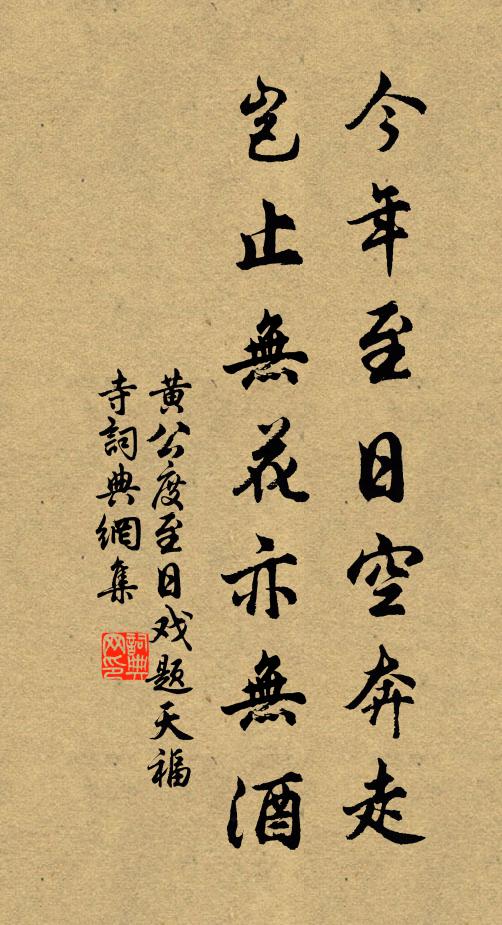 今年至日空奔走
豈止無花亦無酒
黄公度至日戏题天福
寺詞典網集
詞典
网印